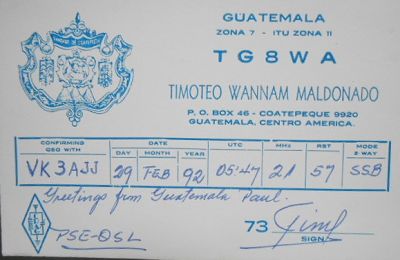 GUATEMALA
ZONA 7 - ITU ZONA 11
TG8WA
TIMOTEO WANNAM MALDONADO
P. O. BOX 46 - COATEPEQUE 9920
GUATEMALA, CENTRO AMERICA.
CONFIRMING QSO WITH DATE UTC MHz RST MODE 2-WAY
DAY MONTH YEAR
VK3AJJ 29 FEB 92 05:47 21 57 SSB
Greetings from Guatemala Paul.
73
SIGN.
PSE-QSL